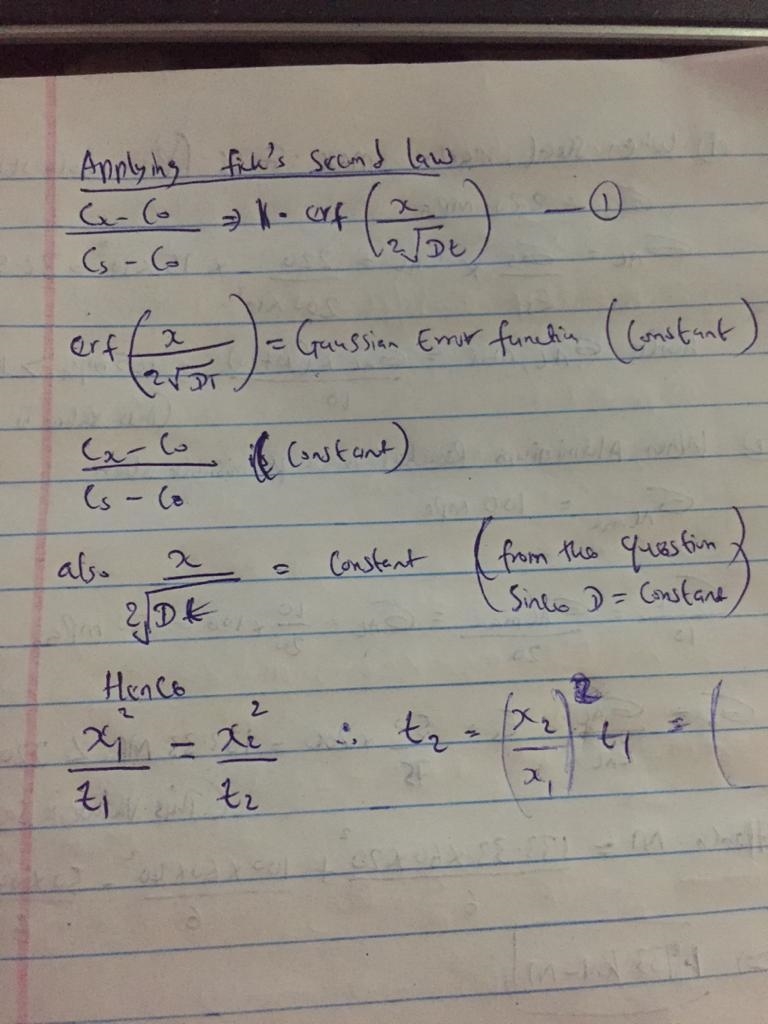 Applying fick's second law
Cx - Co / Cs - Co ⇒ 1 - erf ( x / 2√Dt ) — ①
erf ( x / 2√Dt ) = Gaussian Error function (Constant)
Cx - Co / Cs - Co (Constant)
also x / 2√Dt = Constant (from the question Since D = Constant)
Hence
x₁² / t₁ = x₂² / t₂ ∴ t₂ = ( x₂ / x₁ )² t₁ = (